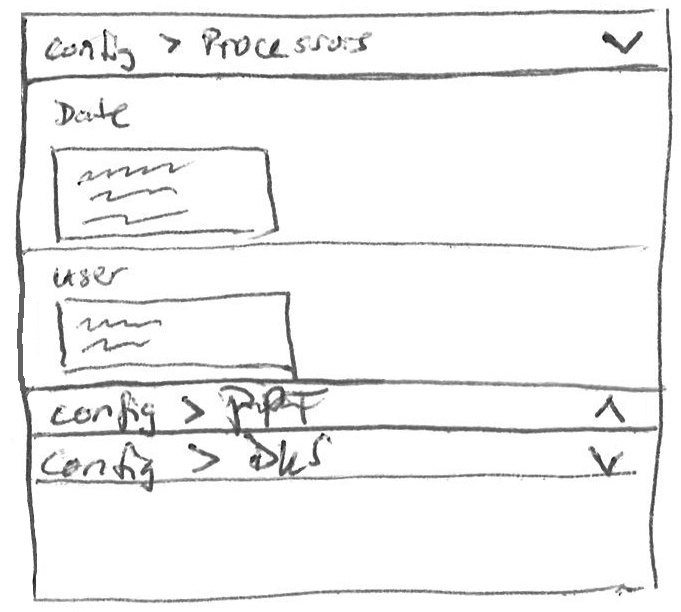 config > Processors
Date
user
config >
config > DKS